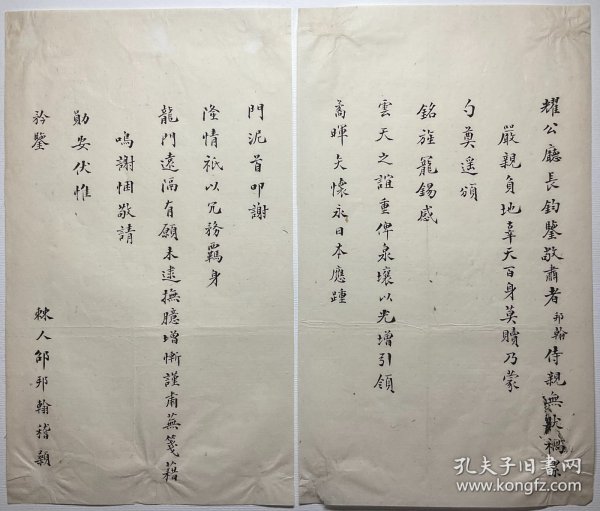 耀公廳長鈞鑒敬肅者邦翰侍親無狀禍
嚴親負地辜天百身莫贖乃蒙
勺奠遙頒
銘旌寵錫感
雲天之誼重俾泉壤以光增引領
喬暉久懷永日本應踵
門泥首叩謝
隆情祇以冗務羈身
龍門遠隔有願未逮撫臆增慚謹肅蕪箋藉
鳴謝悃敬請
勛安伏惟
矜鑒
棘人邵邦翰稽顙
孔夫子旧书网
www.kongfz.com